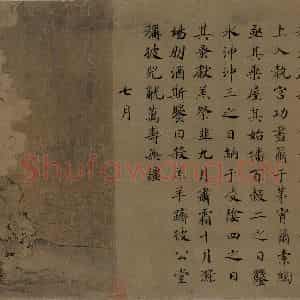 上入執宮功晝爾于茅宵爾索綯
亟其乘屋其始播百穀二之日鑿
冰沖沖三之日納于凌陰四之日
其蚤獻羔祭韭九月肅霜十月滌
場朋酒斯饗曰殺羔羊躋彼公堂
稱彼兕觥萬壽無疆
七月
Shufawang.CN